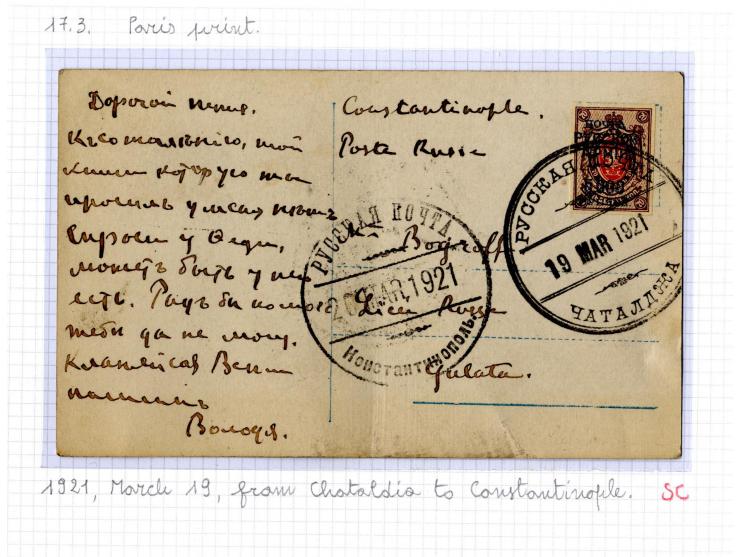 17.3. Paris print.
Дорогой
Къ сожалѣнію, той
книги которую ты
просилъ у меня нѣтъ
Спроси у Феди,
можетъ быть у него
есть. Радъ бы помочь
тебѣ да не могу.
Кланяйся
Володя.
Constantinople.
Poste Russe
Bogroff
Licée Russe
Galata.
РУССКАЯ ПОЧТА
20 MAR. 1921
Константинополь.
РУССКАЯ ПОЧТА
19 MAR 1921
ЧАТАЛДЖА
1921, March 19, from Chataldia to Constantinople. SC